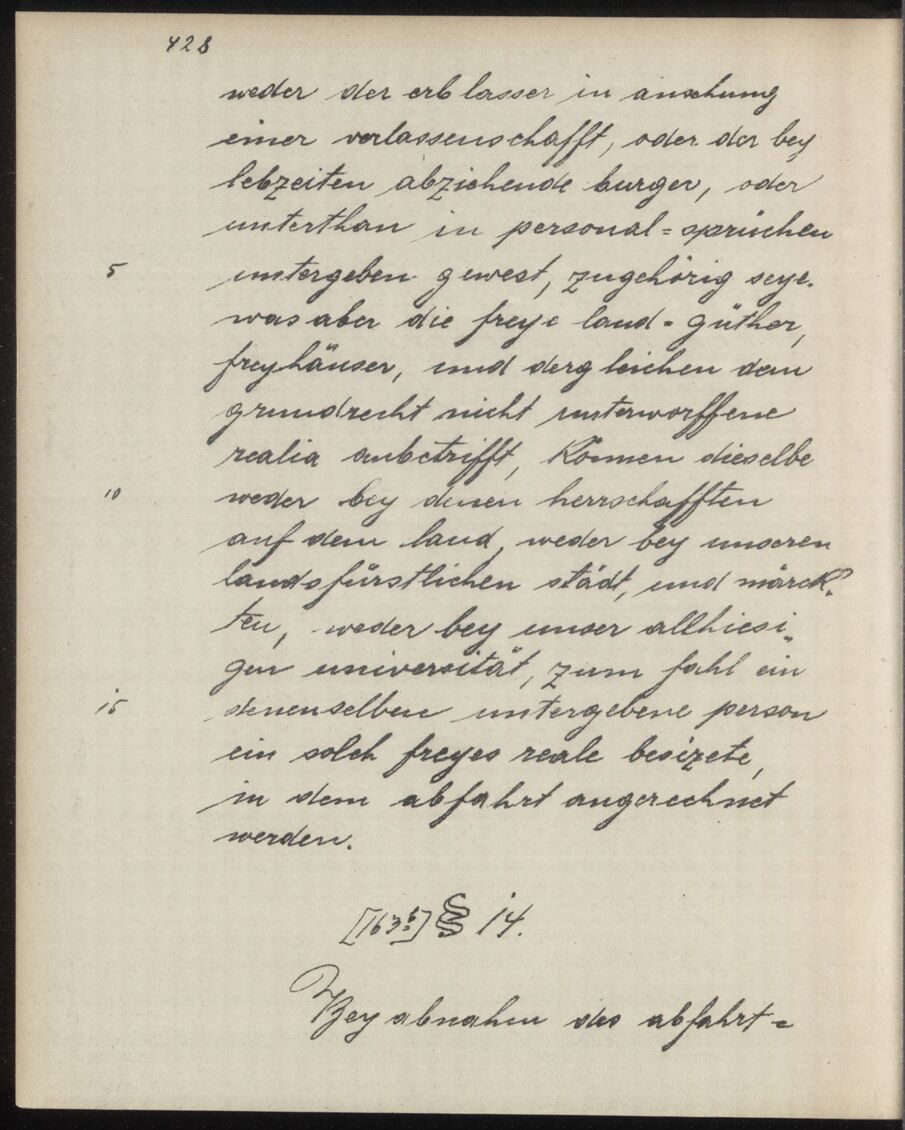 428
weder der erblasser in ansehung
einer verlassenschafft, oder der bey
lebzeiten abziehende burger, oder
unterthan in personal=sprüchen
5 untergeben gewest, zugehörig seye.
was aber die freye land=güther,
freyhäuser, und dergleichen dem
grundrecht nicht unterworffene
realia anbetrifft, können dieselbe
10 weder bey denen herrschafften
auf dem land, weder bey unseren
landsfürstlichen städt, und märck=
ten, weder bey unser allhiesi„
gen universität, zum fahl ein
15 denenselben untergebene person
ein solch freyes reale besizete,
in dem abfahrt angerechnet
werden.
[163b] § 14.
Bey abnahm des abfahrt=